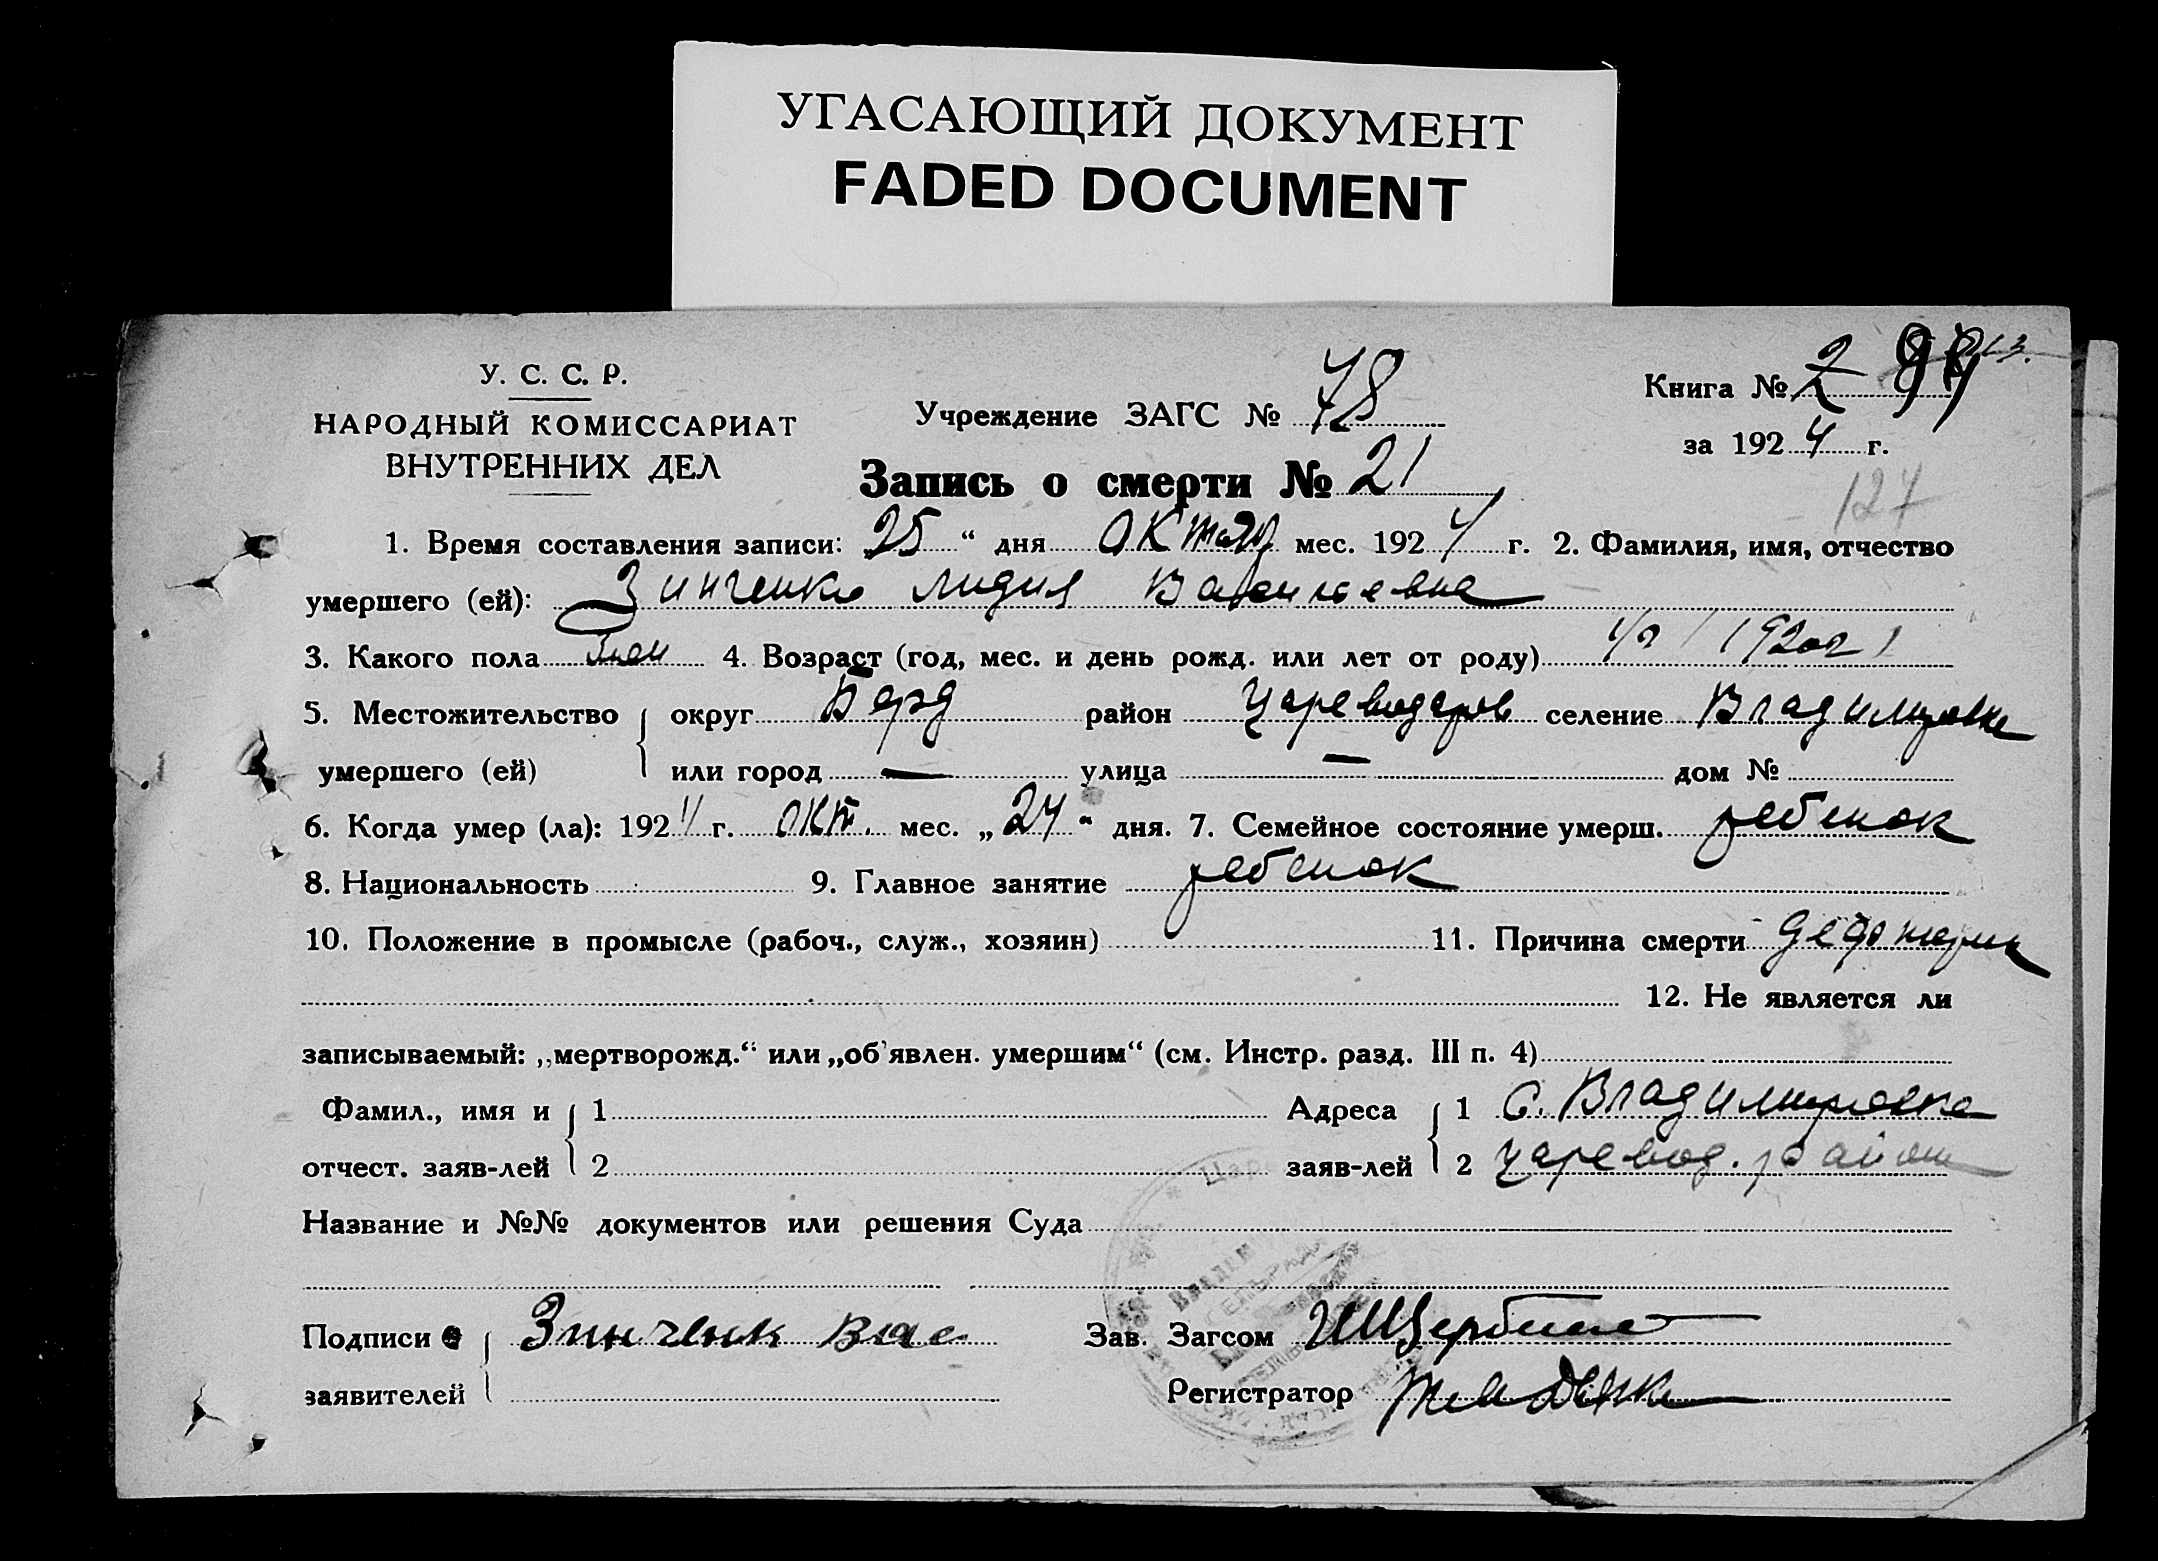 УГАСАЮЩИЙ ДОКУМЕНТ
FADED DOCUMENT
У. С. С. Р.
НАРОДНЫЙ КОМИССАРИАТ
ВНУТРЕННИХ ДЕЛ
Учреждение ЗАГС № 78
Книга № 2
за 1924 г.
Запись о смерти № 21
127
1. Время составления записи: 25 “ дня октяб мес. 1924 г. 2. Фамилия, имя, отчество
умершего (ей): Зинченко Лидия Васильевна
3. Какого пола жен 4. Возраст (год, мес. и день рожд. или лет от роду) 1920г
5. Местожительство округ Берд район Цареводаров селение Владимировка
умершего (ей) или город — улица — дом №
6. Когда умер (ла): 1924 г. окт. мес. „ 24 “ дня. 7. Семейное состояние умерш. ребенок
8. Национальность 9. Главное занятие ребенок
10. Положение в промысле (рабоч., служ., хозяин) 11. Причина смерти
12. Не является ли
записываемый: „мертворожд.“ или „об'явлен. умершим“ (см. Инстр. разд. III п. 4)
Фамил., имя и 1 Адреса 1 С. Владимировка
отчест. заяв-лей 2 заяв-лей 2 Царевод. район
Название и №№ документов или решения Суда
Подписи Зинченк Зав. Загсом
заявителей Регистратор